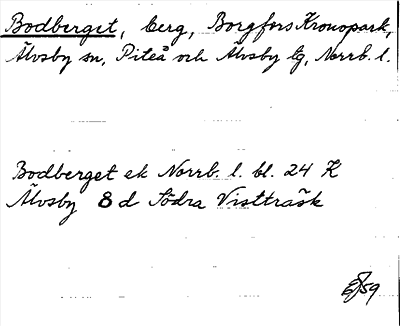 Bodberget, berg, Borgfors Kronopark,
Älvsby sn, Piteå och Älvsby tg, Norrb. l.
Bodberget ek Norrb. l. bl. 24 K
Älvsby 8 d Södra Vistträsk